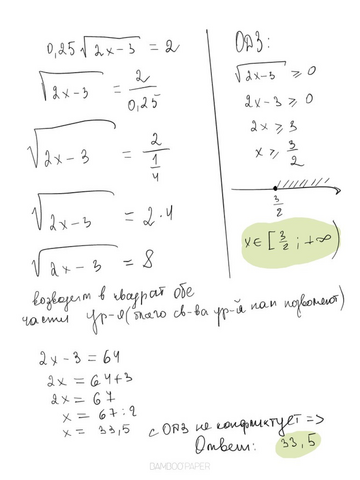 0,25√(2x-3) = 2
√(2x-3) = 2/0,25
√(2x-3) = 2/(1/4)
√(2x-3) = 2·4
√(2x-3) = 8
ОДЗ:
√(2x-3) ⩾ 0
2x-3 ⩾ 0
2x ⩾ 3
x ⩾ 3/2
3/2
x ∈ [3/2; +∞)
возводим в квадрат обе
части ур-я (благо св-ва ур-й нам позволяют)
2x-3 = 64
2x = 64+3
2x = 67
x = 67:2
x = 33,5
с ОДЗ не конфликтует =>
Ответ: 33,5
BAMBOO PAPER